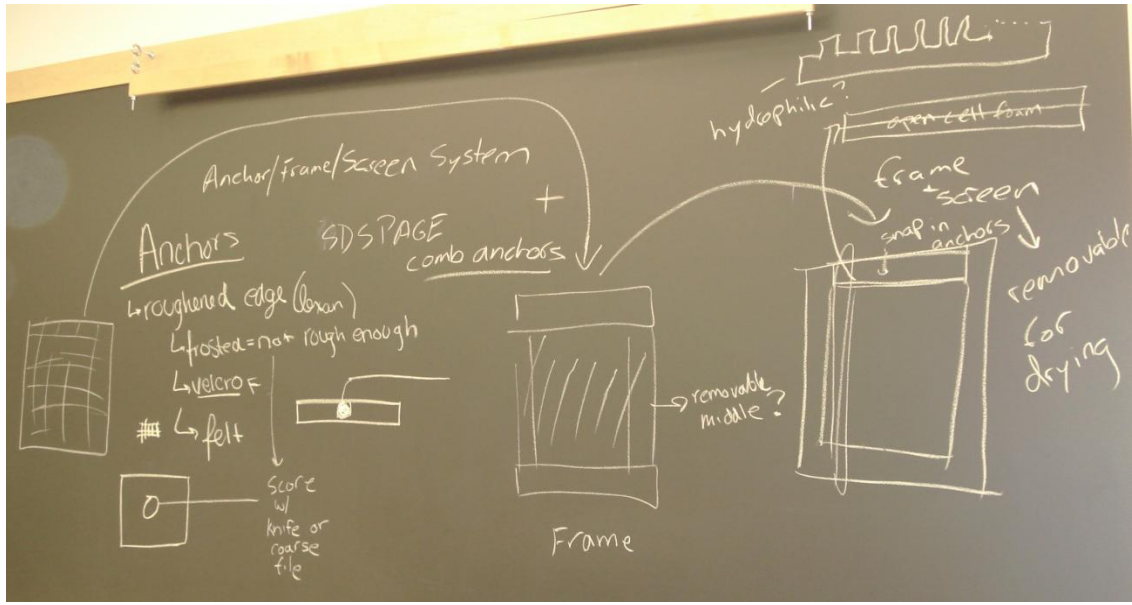 Anchor/Frame/Screen System
+
SDSPAGE
comb anchors
Anchors
↳roughened edge (lexan)
↳frosted=not rough enough
↳velcro
↳felt
score
w/
knife or
coarse
file
Frame
→removable
middle?
hydrophilic?
open cell foam
frame
+
screen
snap in
anchors
removable
for
drying